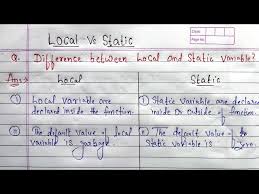 Local Vs Static
Date
Page No.
Q. Difference between Local and Static variable?
Ans→ Local Static
① Local variable are ① Static variable are declared
declared inside the function. inside or outside of function.
② The default value of local ② The default value of
variable is garbage. Static variable is zero.